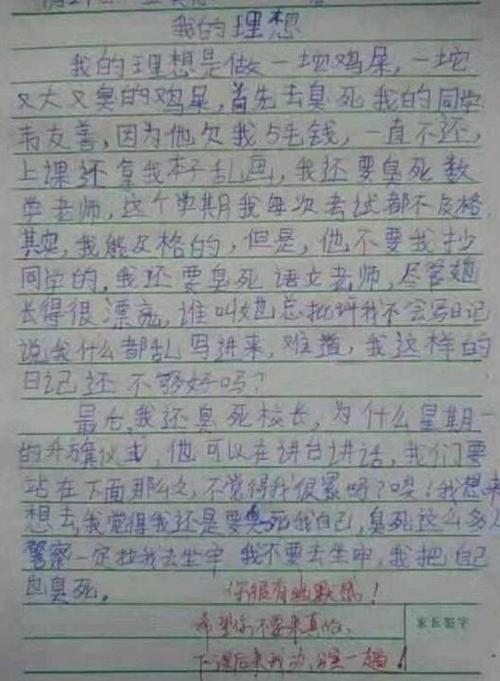 我的理想
我的理想是做一坨鸡屎,一坨
又大又臭的鸡屎,首先去臭死我的同学
韦友善,因为他欠我5毛钱,一直不还,
上课还拿我本子乱画,我还要臭死数
学老师,这个学期我每次考试都不及格,
其实,我能及格的,但是,他不要我抄
同学的,我还要臭死语文老师,尽管她
长得很漂亮,谁叫她总批评我不会写日记
说我什么都乱写进来,难道,我这样的
日记还不够好吗?
最后,我还臭死校长,为什么星期一
的升旗仪式,他可以在讲台讲话,我们要
站在下面那么久,不觉得我很累吗?唉!我想来
想去,我觉得我还是要臭死我自己,臭死这么多人
警察一定拉我去坐牢 我不要去坐牢,我把自己
也臭死。
你很有幽默感!
希望你不要来真的,
下课后来我办公室一趟!
家长签字